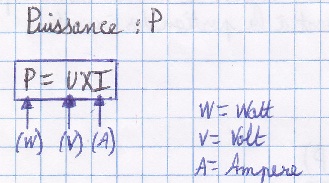 Puissance : P
P = UXI
(W) (V) (A)
W = Watt
V = Volt
A = Ampere